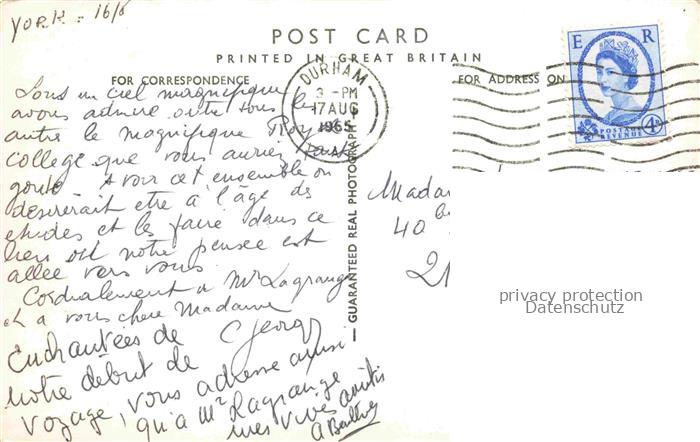 YORK - 16/8
POST CARD
PRINTED IN GREAT BRITAIN
FOR CORRESPONDENCE
FOR ADDRESS ON
DURHAM
3 - PM
17 AUG
1965
E R
POSTAGE
REVENUE
4D
Sous un ciel magnifique
avons admiré outre tous les
autres le magnifique
college que vous auriez
gouté. A voir cet ensemble on
desirerait etre à l'âge des
etudes et les faire dans ce
lieu où notre pensée est
allée vers vous
Cordialement à Mr Lagrange
et a vous chere Madame
Georg
Enchantées de
notre début de
voyage, vous adresse aussi
qu'a Mr Lagrange
mes vives amitiés
GUARANTEED REAL PHOTOGRAPH
Madam
40 bis
21
privacy protection
Datenschutz